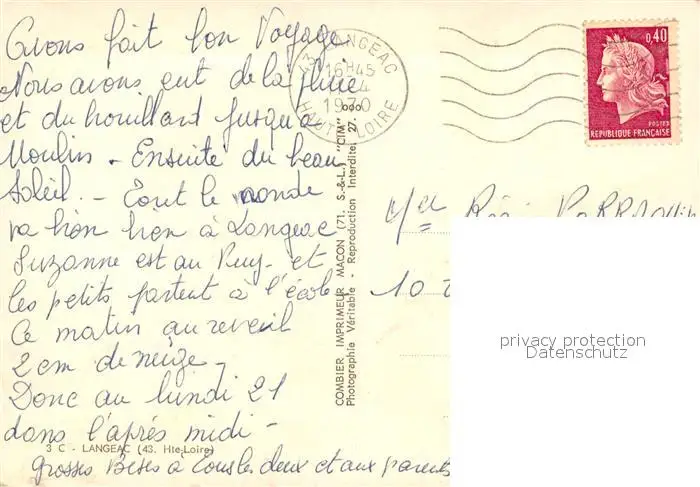 Avons fait bon Voyage.
Nous avons eut de la pluie
et du brouillard jusqu'a
Moulins - Ensuite du beau
Soleil. - Tout le monde
va bien bien à Langeac
Suzanne est au Puy - et
les petits partent à l'école
Ce matin au reveil
2 cm de neige -
Donc au lundi 21
dans l'après midi -
Grosses Bises à tous les deux et aux parents
3 C - LANGEAC (43. Hte-Loire)
COMBIER IMPRIMEUR MACON (71. S.-&-L.) "CIM"
Photographie Véritable - Reproduction Interdite
43 LANGEAC
16H45
4
1970
HAUTE LOIRE
0,40
POSTES
REPUBLIQUE FRANÇAISE
10
privacy protection
Datenschutz